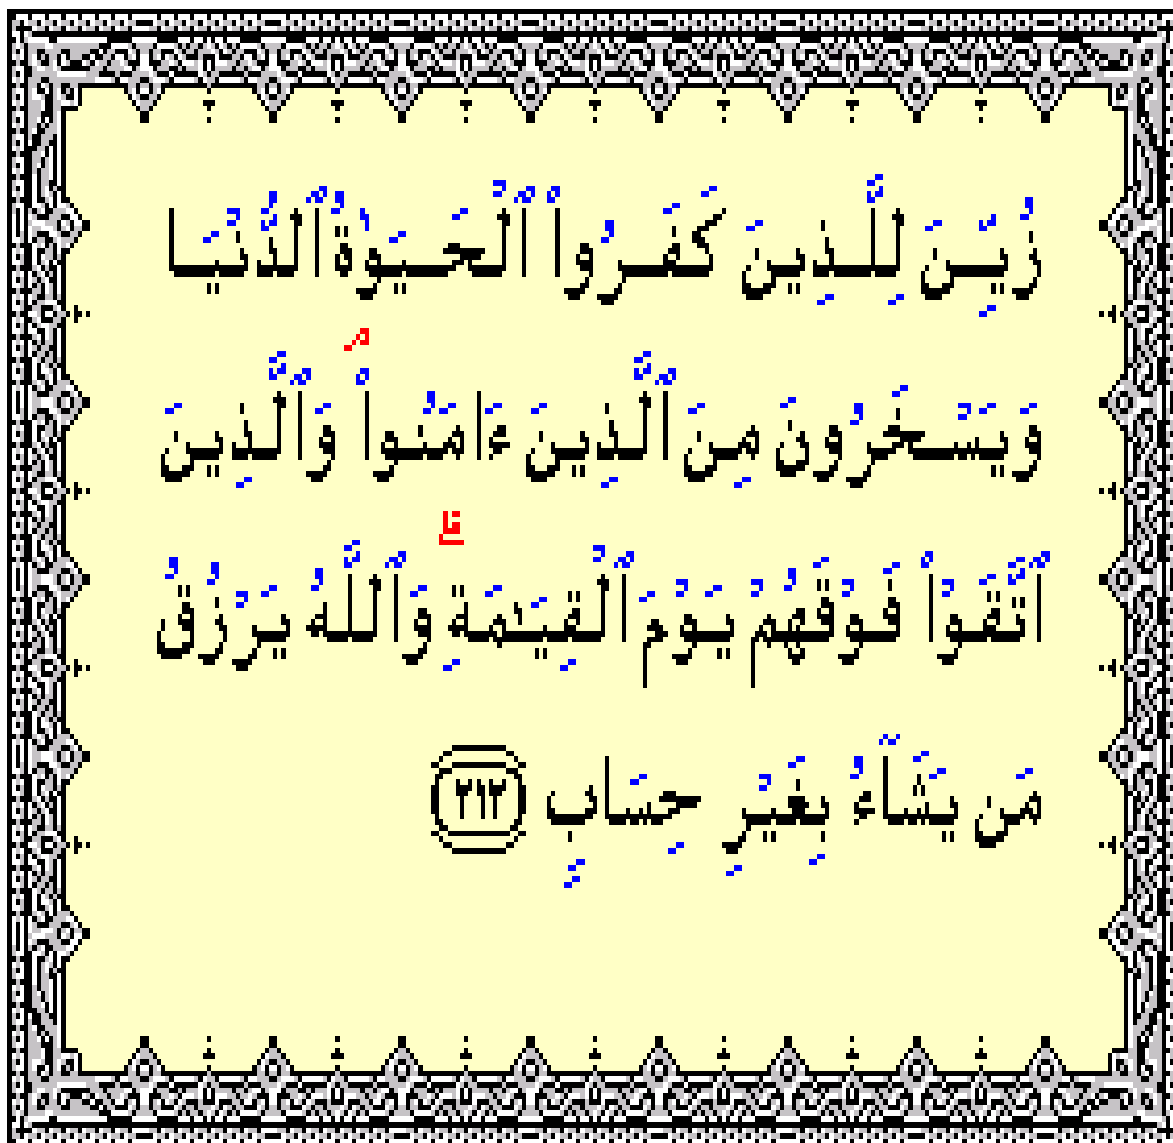 زُيِّنَ لِلَّذِينَ كَفَرُوا۟ ٱلْحَيَوٰةُ ٱلدُّنْيَا
وَيَسْخَرُونَ مِنَ ٱلَّذِينَ ءَامَنُوا۟ ۘ وَٱلَّذِينَ
ٱتَّقَوْا۟ فَوْقَهُمْ يَوْمَ ٱلْقِيَـٰمَةِ ۗ وَٱللَّهُ يَرْزُقُ
مَن يَشَآءُ بِغَيْرِ حِسَابٍ ٢١٢